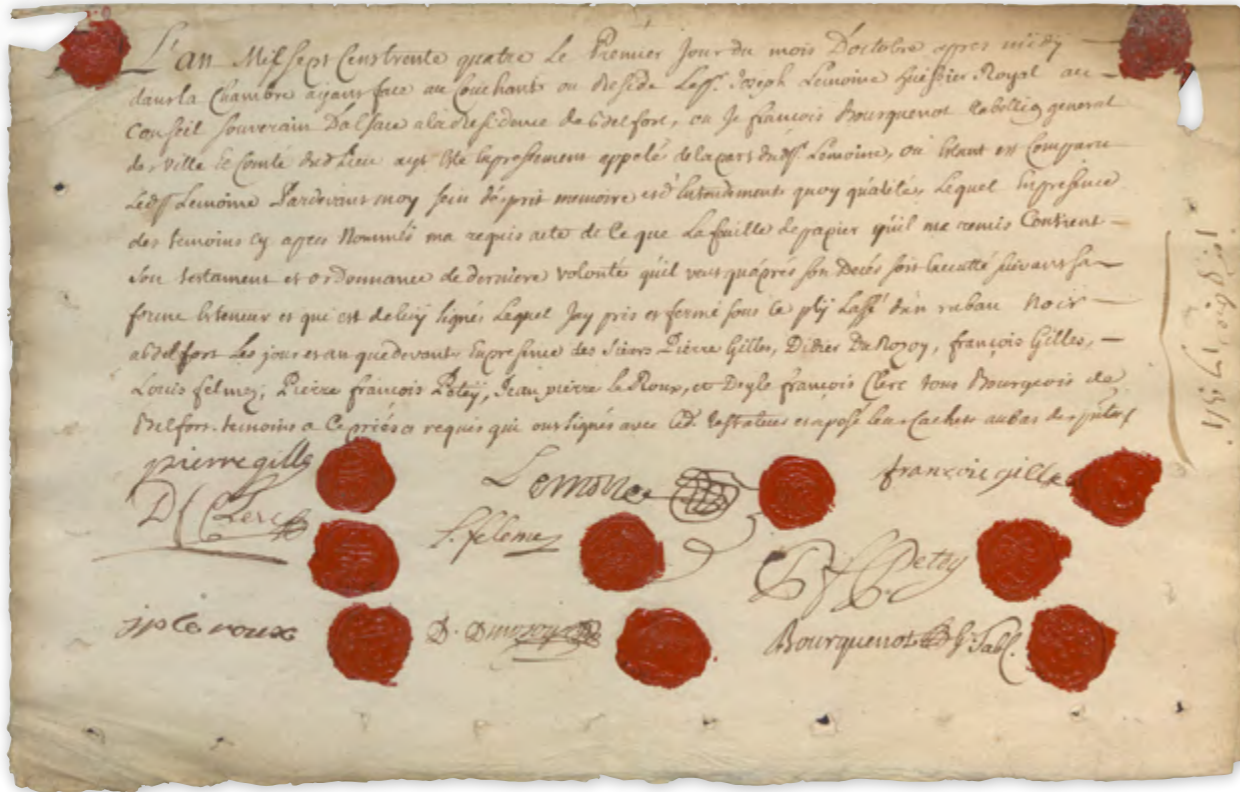 L'an Mil sept Cens trente quatre le Premier Jour du mois D'octobre apres midy
dans la Chambre ayant face au Couchant ou Reside Led.t S.r Joseph Lemoine huissier Royal au
Conseil Souverain Dalsace a la Residence de belfort, ou Je françois Bourquenot tabellion general
des ville et Comté dud. Lieu ayt esté Expressement appelé de la part dud. S.r Lemoine, ou Estant est Comparu
Led. S.r Lemoine Pardevant moy sein d'esprit memoire et d'Entendement quoy qu'alité, Lequel En presence
des temoins cy apres Nommés ma requis acte de Ce que La feuille de papier qu'il me remis Contient
son testament et ordonnance de derniere volonté qu'il veut qu'aprés son Decés soit Executté suivant sa
forme Et teneur et qui est de luy signé, Lequel Jay pris et fermé sous ce ply Lassé d'un ruban Noir
a belfort Les jour et an que devant, En presence des Sieurs Pierre Gilles, Didier Durozoy, françois Gilles,
Louis felmez, Pierre françois Petey, Jean pierre le Roux, et Deyle françois Clerc tous Bourgeois de
Belfort temoins a Ce priés et requis qui ont signés avec led. testateur et aposé leurs Cachets au bas des
pierre gille
Lemoine
françois gille
D f Clerc
L. felmez
P f Petey
jp le roux
D. Durozoy
Bourquenot g. Tabl.